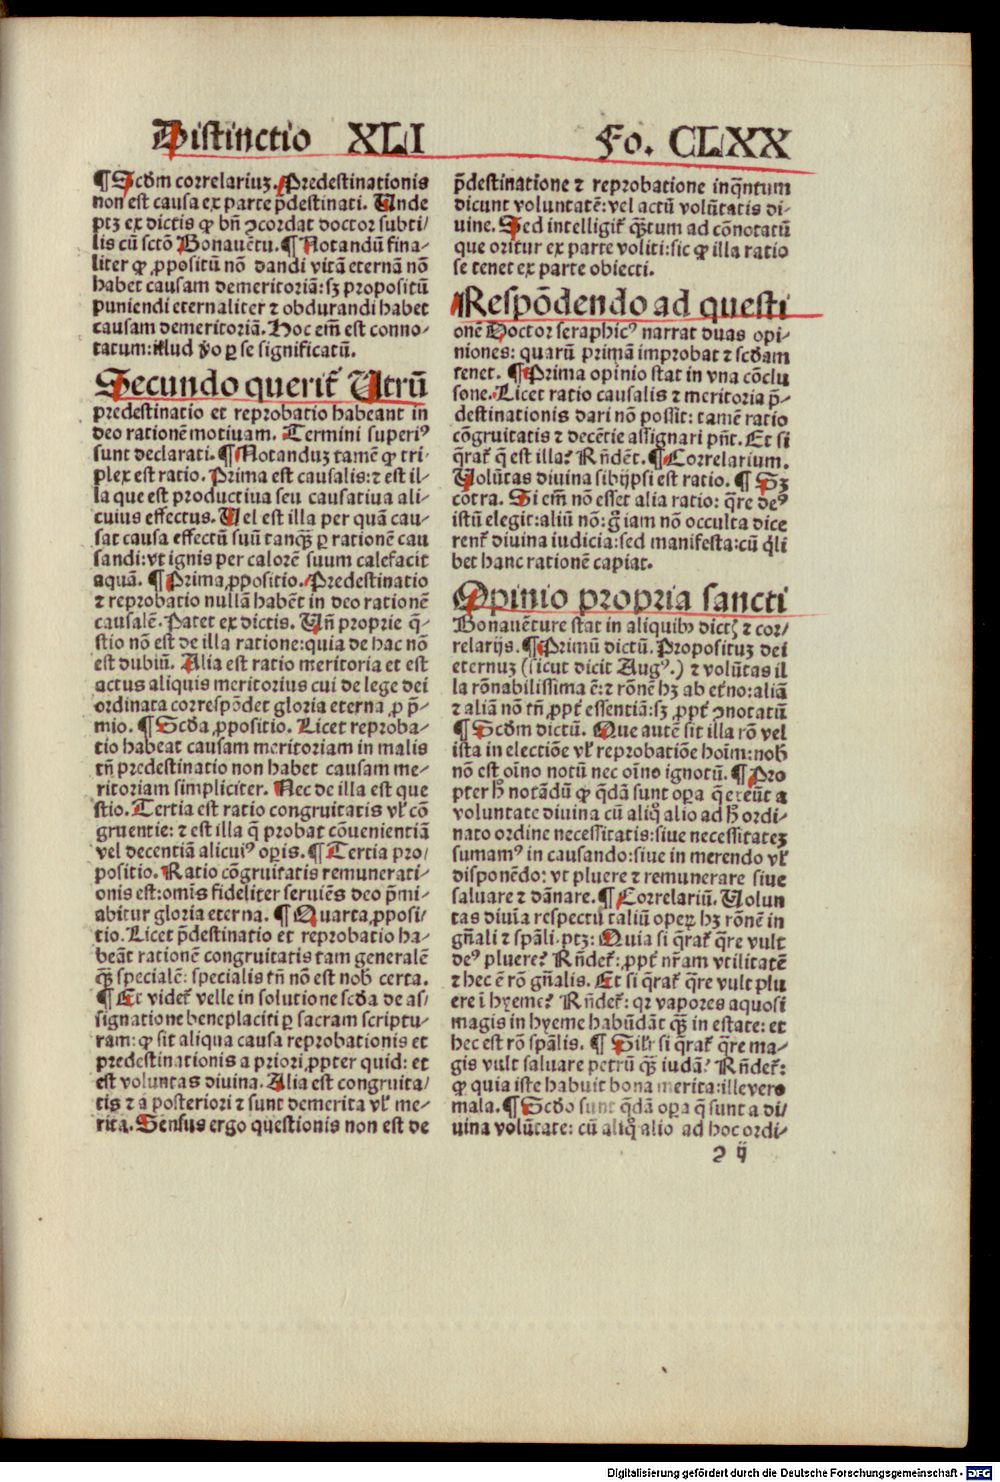 Distinctio XLI Fo. CLXX
¶ Scd̃m correlariuʒ. Predestinationis
non est causa ex parte p̃destinati. Unde
ptʒ ex dictis ꝙ bñ ꝯcordat doctor subti-
lis cũ sctõ Bonauẽtu. ¶ Notandũ fina-
liter ꝙ ꝓpositũ nõ dandi vitã eternã nõ
habet causam demeritoriã: sʒ propositũ
puniendi eternaliter ⁊ obdurandi habet
causam demeritoriã. Hoc em̃ est conno-
tatum: illud ṽo ꝑ se significatũ.
Secundo querit̃ Utrũ
predestinatio et reprobatio habeant in
deo rationẽ motiuam. Termini superiꝰ
sunt declarati. ¶ Notanduʒ tamẽ ꝙ tri-
plex est ratio. Prima est causalis: ⁊ est il-
la que est productiua seu causatiua ali-
cuius effectus. Uel est illa per quã cau-
sat causa effectũ suũ tanqʒ̃ ꝑ rationẽ cau
sandi: vt ignis per calorẽ suum calefacit
aquã. ¶ Prima ꝓpositio. Predestinatio
⁊ reprobatio nullã habẽt in deo rationẽ
causalẽ. Patet ex dictis. Uñ proprie q̃-
stio nõ est de illa ratione: quia de hac nõ
est dubiũ. Alia est ratio meritoria et est
actus aliquis meritorius cui de lege dei
ordinata correspõdet gloria eterna ꝓ p̃-
mio. ¶ Scd̃a ꝓpositio. Licet reproba-
tio habeat causam meritoriam in malis
tñ predestinatio non habet causam me-
ritoriam simpliciter. Nec de illa est que
stio. Tertia est ratio congruitatis vl̃ cõ
gruentie: ⁊ est illa q̃ probat cõuenientiã
vel decentiã alicuiꝰ oꝑis. ¶ Tertia pro/
positio. Ratio cõgruitatis remunerati-
onis est: omĩs fideliter seruiẽs deo p̃mi-
abitur gloria eterna. ¶ Quarta ꝓposi/
tio. Licet p̃destinatio et reprobatio ha-
beãt rationẽ congruitatis tam generalẽ
qʒ̃ specialẽ: specialis tñ nõ est nob̃ certa.
¶ Et videt̃ velle in solutione scd̃a de as/
signatione beneplaciti ꝑ sacram scriptu-
ram: ꝙ sit aliqua causa reprobationis et
predestinationis a priori ꝓpter quid: et
est voluntas diuina. Alia est congruita/
tis ⁊ a posteriori ⁊ sunt demerita vl̃ me-
rita. Sensus ergo questionis non est de
p̃destinatione ⁊ reprobatione inq̃ntum
dicunt voluntatẽ: vel actũ volũtatis di-
uine. Sed intelligit̃ q̃tum ad cõnotatũ
que oritur ex parte voliti: sic ꝙ illa ratio
se tenet ex parte obiecti.
Respõdendo ad questi
onẽ Doctor seraphicꝰ narrat duas opi-
niones: quarũ primã improbat ⁊ scd̃am
tenet. ¶ Prima opinio stat in vna cõclu
sone. Licet ratio causalis ⁊ meritoria p̃-
destinationis dari nõ possit: tamẽ ratio
cõgruitatis ⁊ decẽtie assignari pñt. Et si
q̃rat̃ q̃ est illa? Rñdẽt. ¶ Correlarium.
Uolũtas diuina sibijpsi est ratio. ¶ Sʒ
cõtra. Si em̃ nõ esset alia ratio: q̃re deꝰ
istũ elegit: aliũ nõ: g̃ iam nõ occulta dice
rent̃ diuina iudicia: sed manifesta: cũ q̃li
bet hanc rationẽ capiat.
Opinio propria sancti
Bonauẽture stat in aliquibꝰ dictꝭ ⁊ cor/
relarijs. ¶ Primũ dictũ. Propositũʒ dei
eternuʒ (sicut dicit Augꝰ.) ⁊ volũtas il
la rõnabilissima ẽ: ⁊ rõnẽ hʒ ab et̃no: aliã
⁊ aliã nõ tñ ꝓpt̃ essentiã: sʒ ꝓpt̃ ꝯnotatũ
¶ Scd̃m dictũ. Que autẽ sit illa rõ vel
ista in electiõe vl̃ reprobatiõe hoĩm: nob̃
nõ est oĩno notũ nec oĩno ignotũ. ¶ Pro
pter h̃ notãdũ ꝙ q̃dã sunt oꝑa q̃ exeũt a
voluntate diuina cũ aliq̃ alio ad h̃ ordi-
nato ordine necessitatis: siue necessitateʒ
sumamꝰ in causando: siue in merendo vl̃
disponẽdo: vt pluere ⁊ remunerare siue
saluare ⁊ dãnare. ¶ Correlariũ. Uolun
tas diuĩa respectu taliũ operꝝ hʒ rõnẽ in
gñali ⁊ spãli. ptʒ: Quia si q̃rat̃ q̃re vult
deꝰ pluere? Rñdet̃: ꝓpt̃ nr̃am vtilitatẽ
⁊ hec ẽ rõ gñalis. Et si q̃rat̃ q̃re vult plu
ere ĩ hyeme? Rñdet̃: qꝛ vapores aquosi
magis in hyeme habũdãt qʒ̃ in estate: et
hec est rõ spãlis. ¶ Sil̃r si q̃rat̃ q̃re ma-
gis vult saluare petrũ qʒ̃ iudã? Rñdet̃:
ꝙ quia iste habuit bona merita: ille vero
mala. ¶ Scd̃o sunt q̃dã oꝑa q̃ sunt a di/
uina volũtate: cũ aliq̃ alio ad hoc ordi-
2 ij
Digitalisierung gefördert durch die Deutsche Forschungsgemeinschaft - DFG